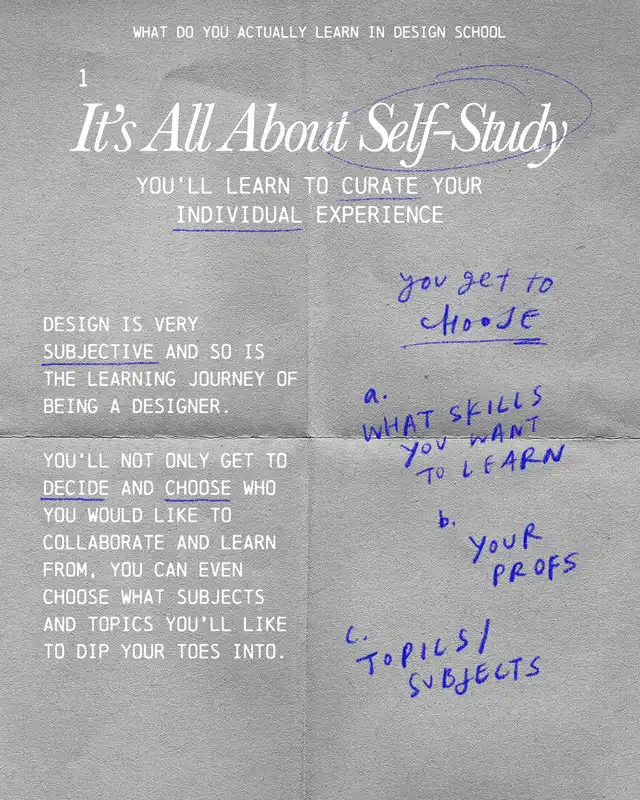 WHAT DO YOU ACTUALLY LEARN IN DESIGN SCHOOL
1
It's All About Self-Study
YOU'LL LEARN TO CURATE YOUR
INDIVIDUAL EXPERIENCE
DESIGN IS VERY
SUBJECTIVE AND SO IS
THE LEARNING JOURNEY OF
BEING A DESIGNER.
YOU'LL NOT ONLY GET TO
DECIDE AND CHOOSE WHO
YOU WOULD LIKE TO
COLLABORATE AND LEARN
FROM, YOU CAN EVEN
CHOOSE WHAT SUBJECTS
AND TOPICS YOU'LL LIKE
TO DIP YOUR TOES INTO.
you get to
CHOOSE
a.
WHAT SKILLS
YOU WANT
TO LEARN
b.
YOUR
PROFS
c.
TOPICS/
SUBJECTS